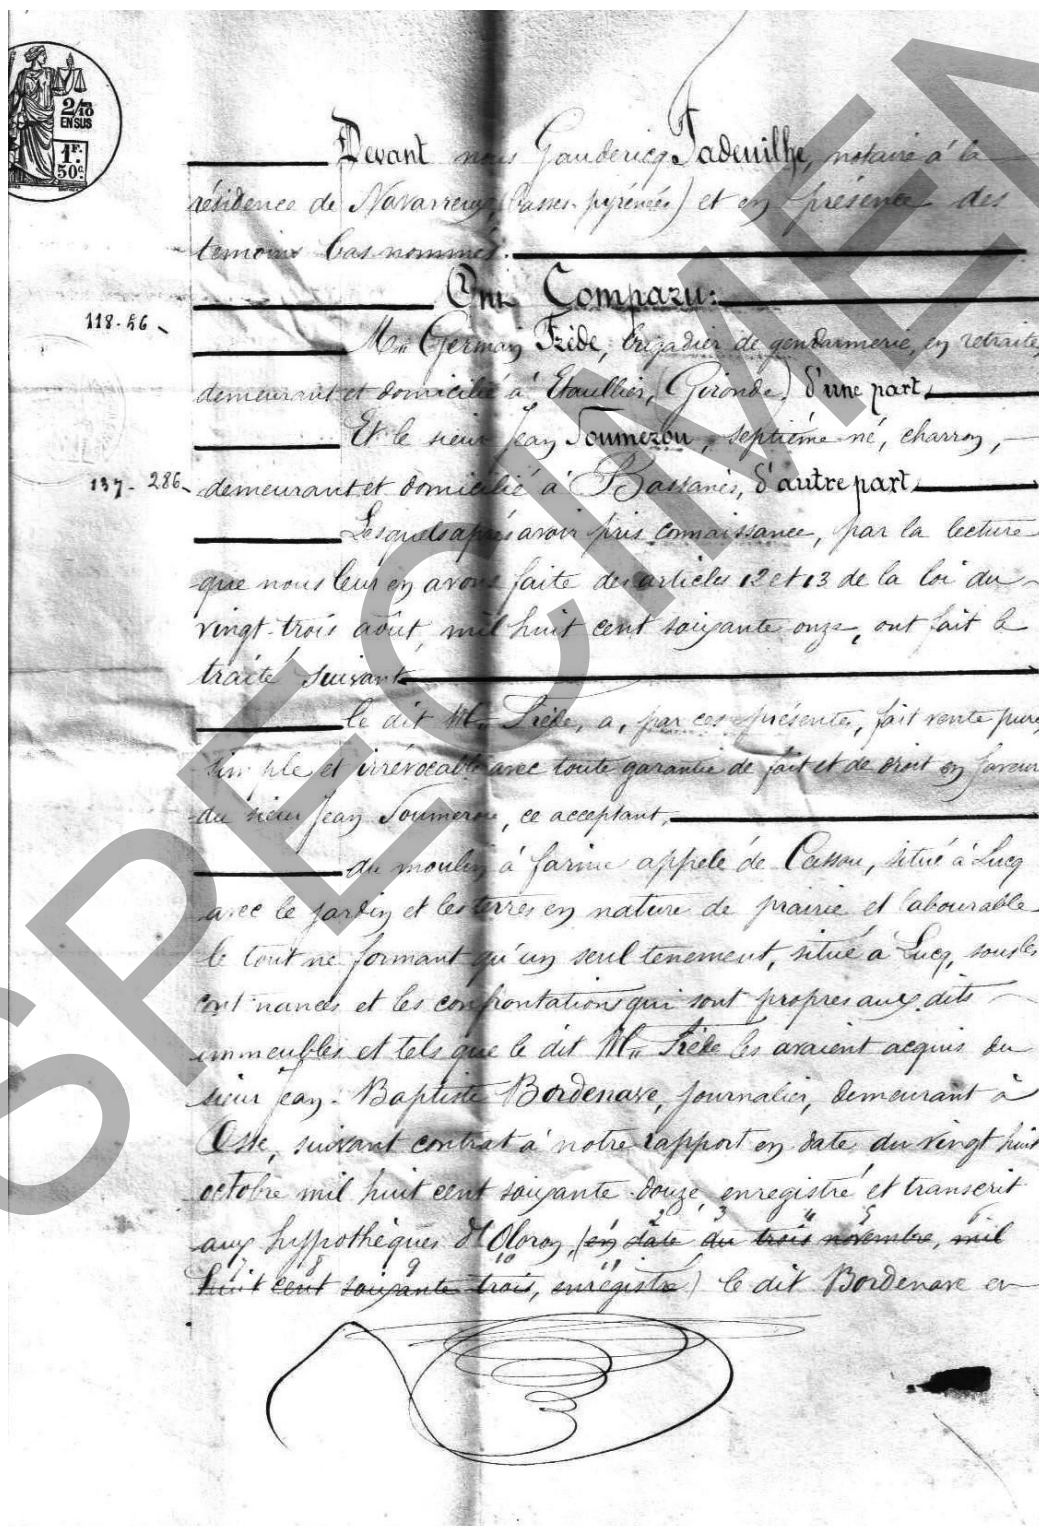 2/10
EN SUS
1F.
50c.
Devant nous Gaudericq Fadeuilhe, notaire à la
résidence de Navarrenx, (basses-pyrénées) et en présence des
temoins bas nommés.
Ont Comparu:
118-56
Mr. Germain Frède, brigadier de gendarmerie, en retraite,
demeurant et domicilié à Etaulier, (Gironde) d'une part,
Et le sieur Jean Toumezou, septième né, charron,
137-286 demeurant et domicilié à Bastanès, d'autre part,
Lesquels après avoir pris connaissance, par la lecture
que nous leur en avons faite des articles 12 et 13 de la loi du
vingt-trois août, mil huit cent soixante onze, ont fait le
traité suivant
le dit Mr. Frède, a, par ces présentes, fait vente pure,
simple et irrévocable avec toute garantie de fait et de droit en faveur
du sieur Jean Toumezou, ce acceptant,
du moulin à farine appelé de Cassou, situé à Lucq
avec le jardin et les terres en nature de prairie et labourable
le tout ne formant qu'un seul tenement, situé à Lucq, sous les
contnances et les confrontations qui sont propres aux dits
immeubles et tels que le dit Mr. Frède les avaient acquis du
sieur Jean-Baptiste Bordenave, journalier, demeurant à
Osse, suivant contrat à notre rapport en date du vingt huit
octobre mil huit cent soixante-douze, enregistré et transcrit
aux hyppothèques d'Oloron, (en date du trois novembre, mil
huit cent soixante trois, enregistré) le dit Bordenave en
SPECIMEN